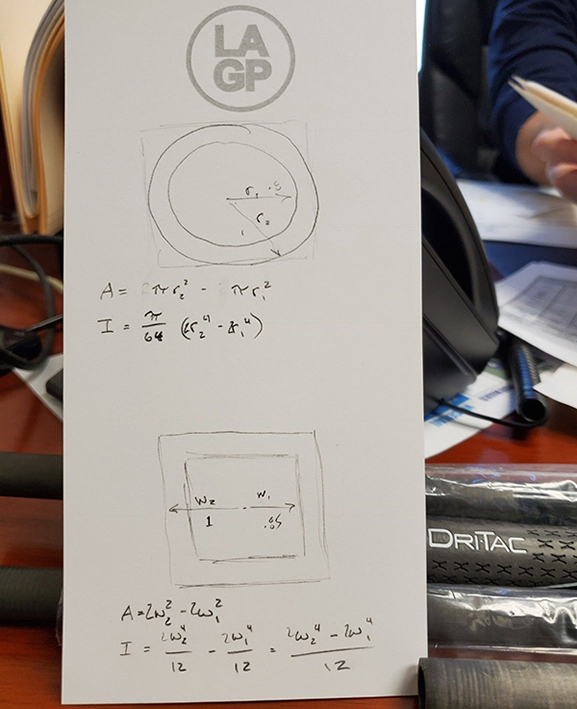 LA
GP
r₁ .8
r₂
1
A = πr₂² - πr₁²
I = π/64 (2r₂⁴ - 2r₁⁴)
W₂ W₁
1 .85
A = 2w₂² - 2w₁²
I = 2w₂⁴/12 - 2w₁⁴/12 = 2w₂⁴ - 2w₁⁴/12
DRITAC